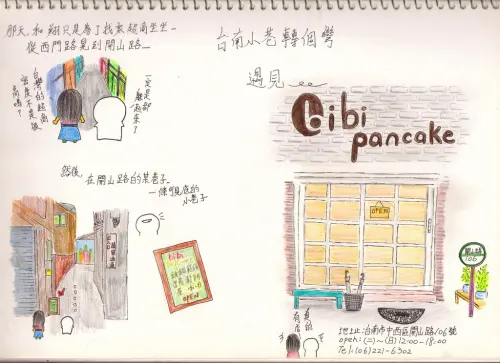 那天,和翔只是為了找家超商坐坐~
從西門路晃到開山路~
台灣的超商
密度不是很
高嗎?
一定是都
躲起來了!
然後,在開山路的某巷子,
一條可見底的
小巷子
台南小巷轉個彎
遇見~
Bibi
pancake
OPEN
Bibi
OPEN
開山路
106
真的
有店
地址:台南市中西區開山路106號
open:(二)~(日)12:00-18:00
Tel:(06)221-6302